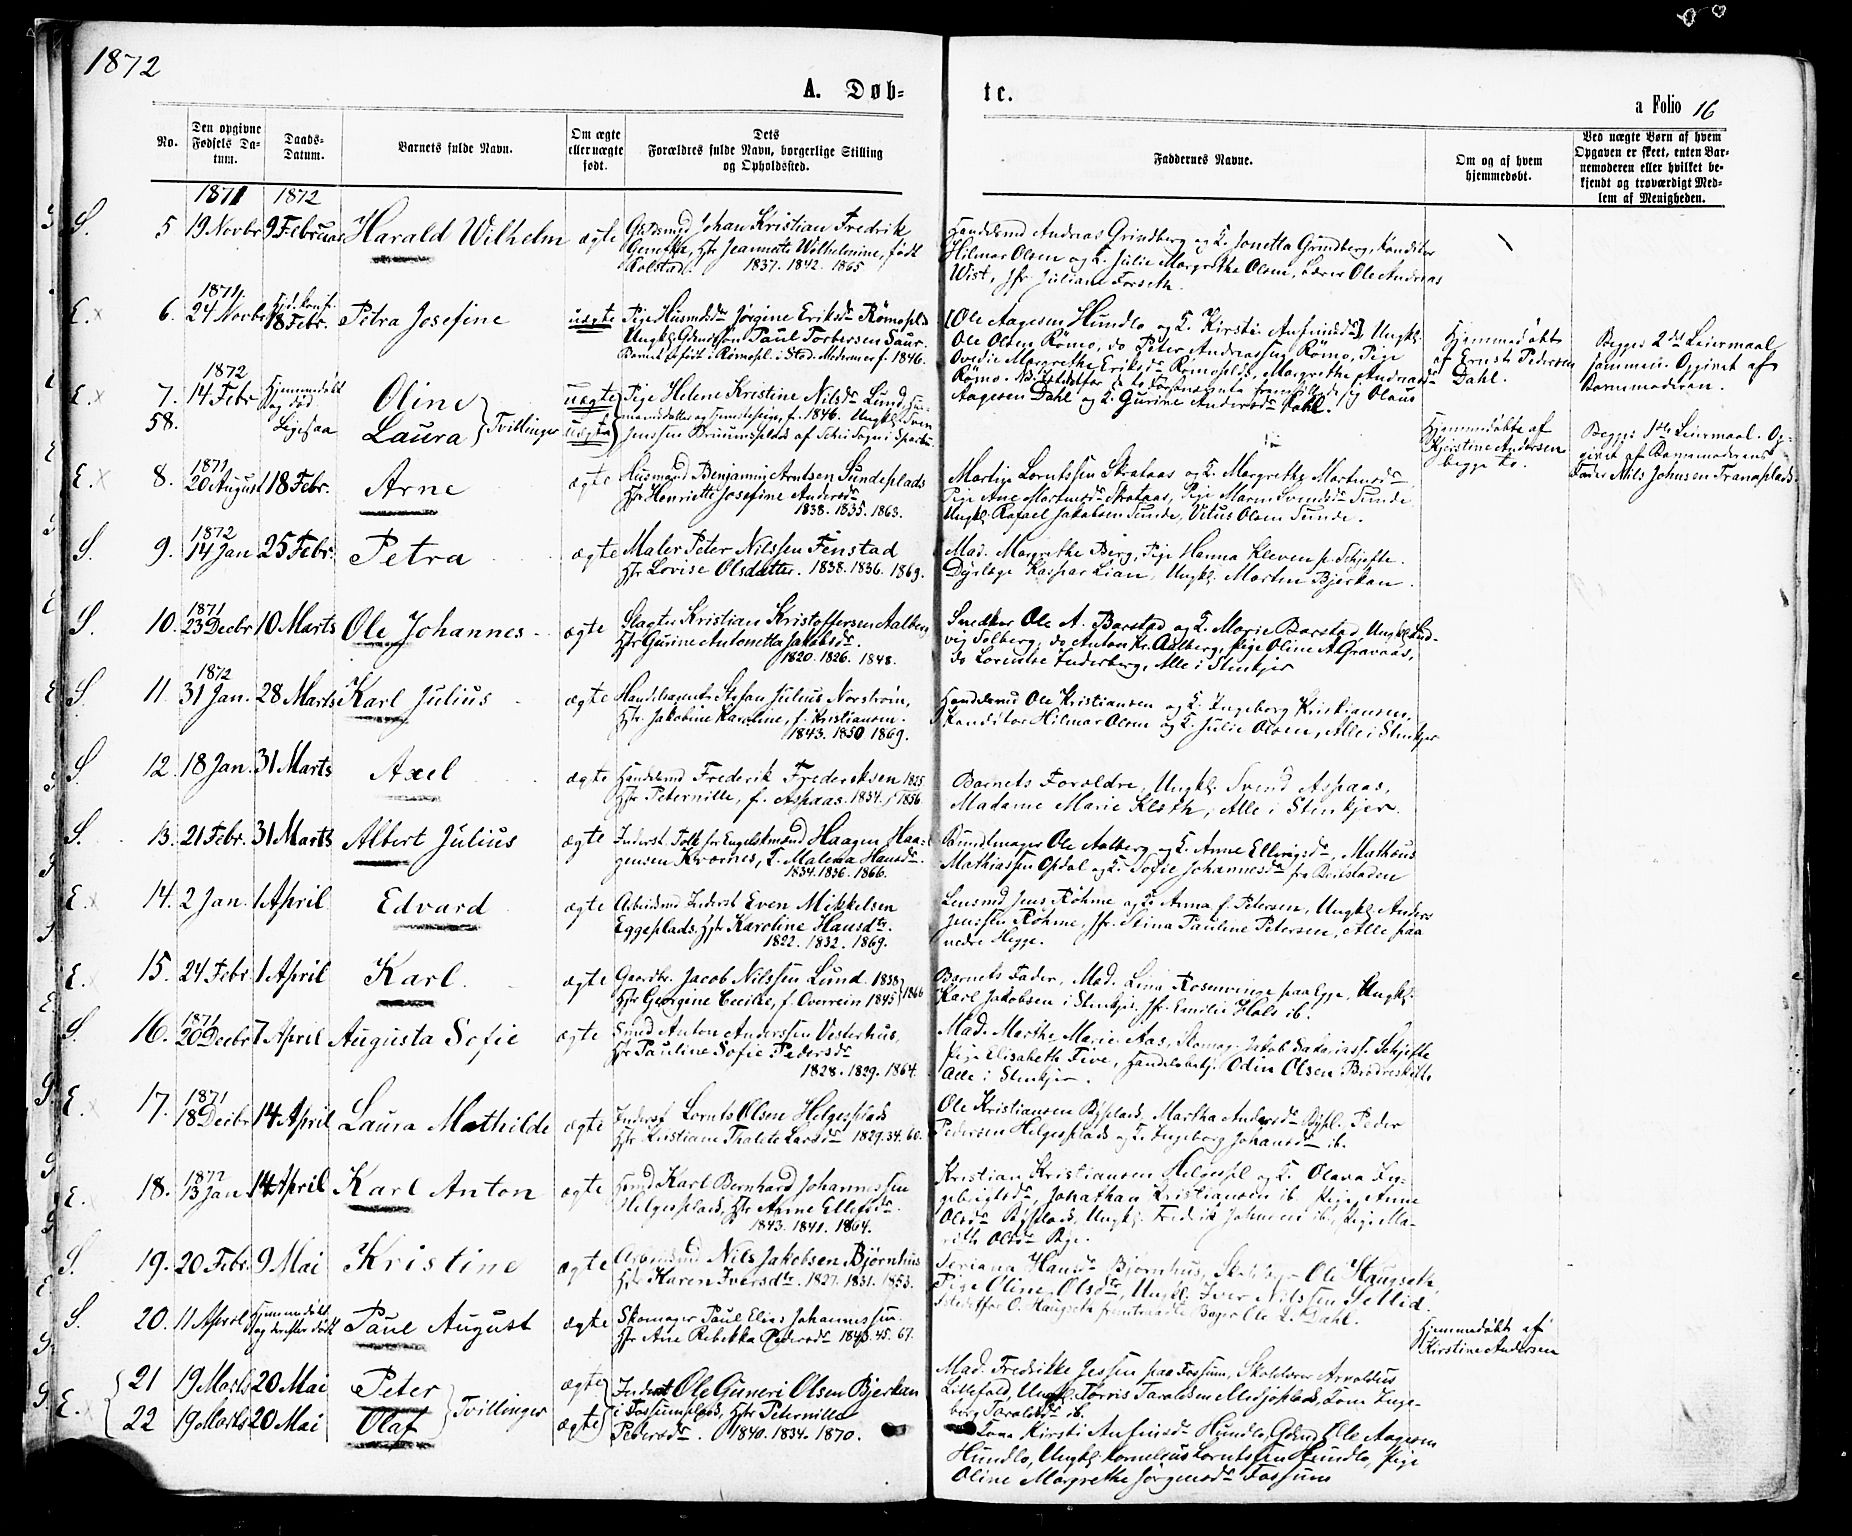 1872
A. Døb-
te.
a Folio 16
No.
Den opgivne Fødsels Datum.
Daabs-Datum.
Barnets fulde Navn.
Om ægte eller uægte født.
Dets Forældres fulde Navn, borgerlige Stilling og Opholdssted.
Faddernes Navne.
Om og af hvem hjemmedøbt.
Ved uægte Børn af hvem Opgaven er skeet, enten Barnemoderen eller hvilket bekjendt og troværdigt Medlem af Menigheden.
1871 1872
S. 5 19 Novbr 9 Februar Harald Wilhelm ægte
Johan Kristian Fredrik
Jeannette Wilhelmine, født
Rolstad. 1837. 1842. 1865
Handelsmd Andreas Grindberg og K. Jonetta Grindberg, Konditor
Hilmar Olsen og K. Julie Margrethe Olsen, Lærer Ole Andreas
Wist, Jfr. Juliane Forseth.
1871
E. x 6. 24 Novbr 18 Febr. Petra Josefine uægte
Pige Jørgine Eriksdr Rømopls
Ungkl. Paul Torbersen Saur.
f. 1846.
Ole Aagesen Hundlo og K. Kirsti Anfinsdr, Ungkl.
Ole Olsen Römo, do Peter Andreassen Römo, Pige
Ovedie Margrethe Eriksdr Rømoplds, Margrethe Andreasdr
Römo.
Aagesen Dahl og K. Gurine Andersdr Dahl.
Hjemmedøbt
af Ernst Pedersen
Dahl.
Begges 2det Leiermaal
sammen. Opgivet af
Barnemoderen.
1872
E. x 7. 14 Febr Hjemmedøbt og død Oline uægte
58. Ligesaa Laura Tvillinger uægte
Pige Helene Kristine Nilsdr Lund
f. 1846. Ungkl. Sven
Jenssen Bruumsplads af Sparbu
Hjemmedøbte af
Kjerstine Andersen
begge to.
Begges 1ste Leiermaal. Op-
givet af Barnemoderens
Fader Nils Johnsen Tranaplads.
1871
E. x 8. 20 August 18 Febr. Arne ægte
Husmand Benjamin Arntsen Sundeplads
Hstr Henriette Josefine Andersdr
1838. 1835. 1863.
Martin Lorntssen Skrataas og K. Margrethe Martinsdr
Pige Ane Martinsdr Skrataas, Pige Maren Svendsdr Sunde
Ungkl. Rafael Jakobsen Sunde, Vitus Olsen Sunde.
1872
S. 9. 14 Jan 25 Febr. Petra ægte
Maler Peter Nilssen Fenstad
Hstr Lovise Olsdatter. 1838. 1836. 1869.
Mad. Margrethe Berg, Pige Hanna Kleven p. Schjefte.
Dyrlæge Kaspar Lian, Ungkl. Martin Bjerkan.
1871
S. 10. 23 Decbr 10 Marts Ole Johannes ægte
Slagter Kristian Kristoffersen Aalberg
Hstr Gurine Antonetta Jakobsdr.
1820. 1826. 1848.
Snedker Ole A. Barstad og K. Marie Barstad, Ungkl. Lud-
vig Solberg, do Anton Kr. Aalberg, Pige Oline A. Gravaas,
do Lorentse Inderberg, Alle i Stenkjer
1872
S. 11. 31 Jan. 28 Marts Karl Julius ægte
Handelsagent Stefan Julius Norstrøm,
Hstr. Jakobine Karoline, f. Kristiansen.
1843. 1850 1869.
Handelsmd Ole Kristiansen og K. Ingeborg Kristiansen,
Konditor Hilmar Olsen og K. Julie Olsen, Alle i Stenkjer
S. 12 18 Jan. 31 Marts Axel ægte
Handelsmd Frederik Frederiksen 1825
Hstr Peternille, f. Aspaas. 1834. 1856
Barnets Forældre, Ungkl. Svend Aspaas,
Madame Marie Kloth, Alle i Stenkjer.
S. 13. 21 Febr. 31 Marts Albert Julius ægte
Inderst Haagen Haa-
gensen Kvarnes, K. Malena Hansdr.
1834. 1836. 1866.
Bundtmager Ole Aalberg og K. Anne Ellevigsdr, Mathæus
Mathiassen Opdal og K. Sofie Johannesdr fra Beitstaden
E. 14. 2 Jan. 1 April Edvard ægte
Arbeidsmd Inderst Even Mikkelsen
Eggeplads. Hstr Karoline Hansdr.
1822. 1832. 1869.
Lensmd Jens Røhme og K. Anna f. Petersen, Ungkl. Anders
Jenssen Røhme, Jfr. Stina Pauline Petersen, Alle paa
nedre Hegge.
E. 15. 24 Febr 1 April Karl ægte
Gaardbr. Jacob Nilssen Lund 1838
Hstr Georgine Cecilie, f. Overrein 1845 1866
Barnets Fader, Mad. Lina Rosenvinge paa Egge, Ungkl.
Karl Jakobsen i Stenkjer, Jfr. Emilie Hals ib.
1871
S. 16. 20 Decbr 7 April Augusta Sofie ægte
Smed Anton Anderssen Vesterhus,
Hstr Pauline Sofie Pedersdr
1828. 1829. 1864.
Mad. Marthe Marie Aas, Skomag. Jakob Sakariass. Schjefte
Pige Elisabeth Five, Handelsbetj. Odin Olsen
Alle i Stenkjer.
1871
E. 17. 18 Decbr 14 April Laura Mathilde ægte
Inderst Lornts Olsen Helgesplads
Hstr Kristiane Thalete Larsdr 1829. 34. 60.
Ole Kristiansen Byplads, Martha Andersdr Bypl. Peder
Pedersen Helgesplads og K. Ingeborg Johansdr ib.
1872
E. 18. 13 Jan 14 April Karl Anton ægte
Karl Bernhard Johannessen
Helgesplads, Hstr Anne Ellefsdr.
1843. 1841. 1864.
Kristian Kristiansen Helgespl og K. Olava In-
gebrigtsdr, Jonathan Kristiansen ib. Pige Anne
Olsdr Byplads, Ungkl. Fredrik Johnsen ib., Pige Ma-
rith Olsdr Bye.
S. 19. 20 Febr. 9 Mai Kristine ægte
Arbeidsmd Nils Jakobsen Bjørnhus
Hstr Karen Iversdr. 1827. 1831. 1853.
Seriana Hansdr Bjørnhus, Ole Haugseth,
Pige Oline Olsdr, Ungkl. Iver Nilssen
Istedetfor O. Haugseth fremmødte Bager Ole L. Dahl.
S. 20. 11 April Hjemmedøbt og derefter dødt Paul August ægte
Skomager Paul Elias Johannessen.
Hstr Ane Rebekka Pedersdr 1843. 45. 67.
Hjemmedøbt af
Kirstine Andersen
E. 21 19 Marts 20 Mai Peter Tvillinger ægte
22 19 Marts 20 Mai Olaf ægte
Inderst Ole Guneri Olsen Bjerkan
i Fossumsplads, Hstr Peternille
Pedersdr. 1840. 1834. 1870.
Mad. Fredrikke Jessen paa Fossum, Skolelærer Arnoldus
Lillefald, Ungkl. Torris Taraldsen Kona Inge-
borg Taraldsdr ib.
Kona Kirsti Anfinsdr Hundlo, Gdmd Ole Aagesen
Hundlo, Ungkl. Kornelius Lorntssen Hundlo, Pige
Oline Margrethe Jørgensdr Fossum